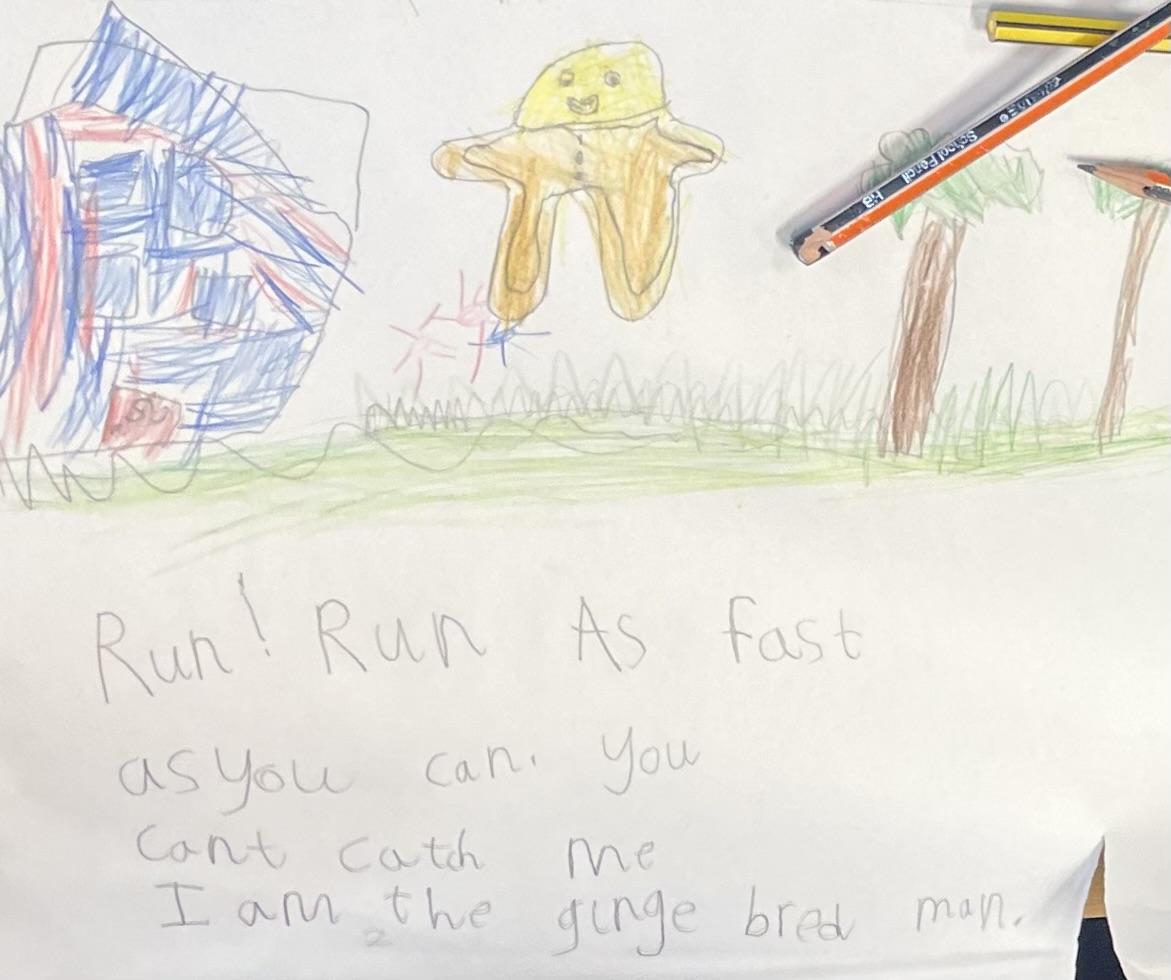 School Pencil HB
Run! Run As fast
as you can. you
cant catch me
I am the ginge bred man.